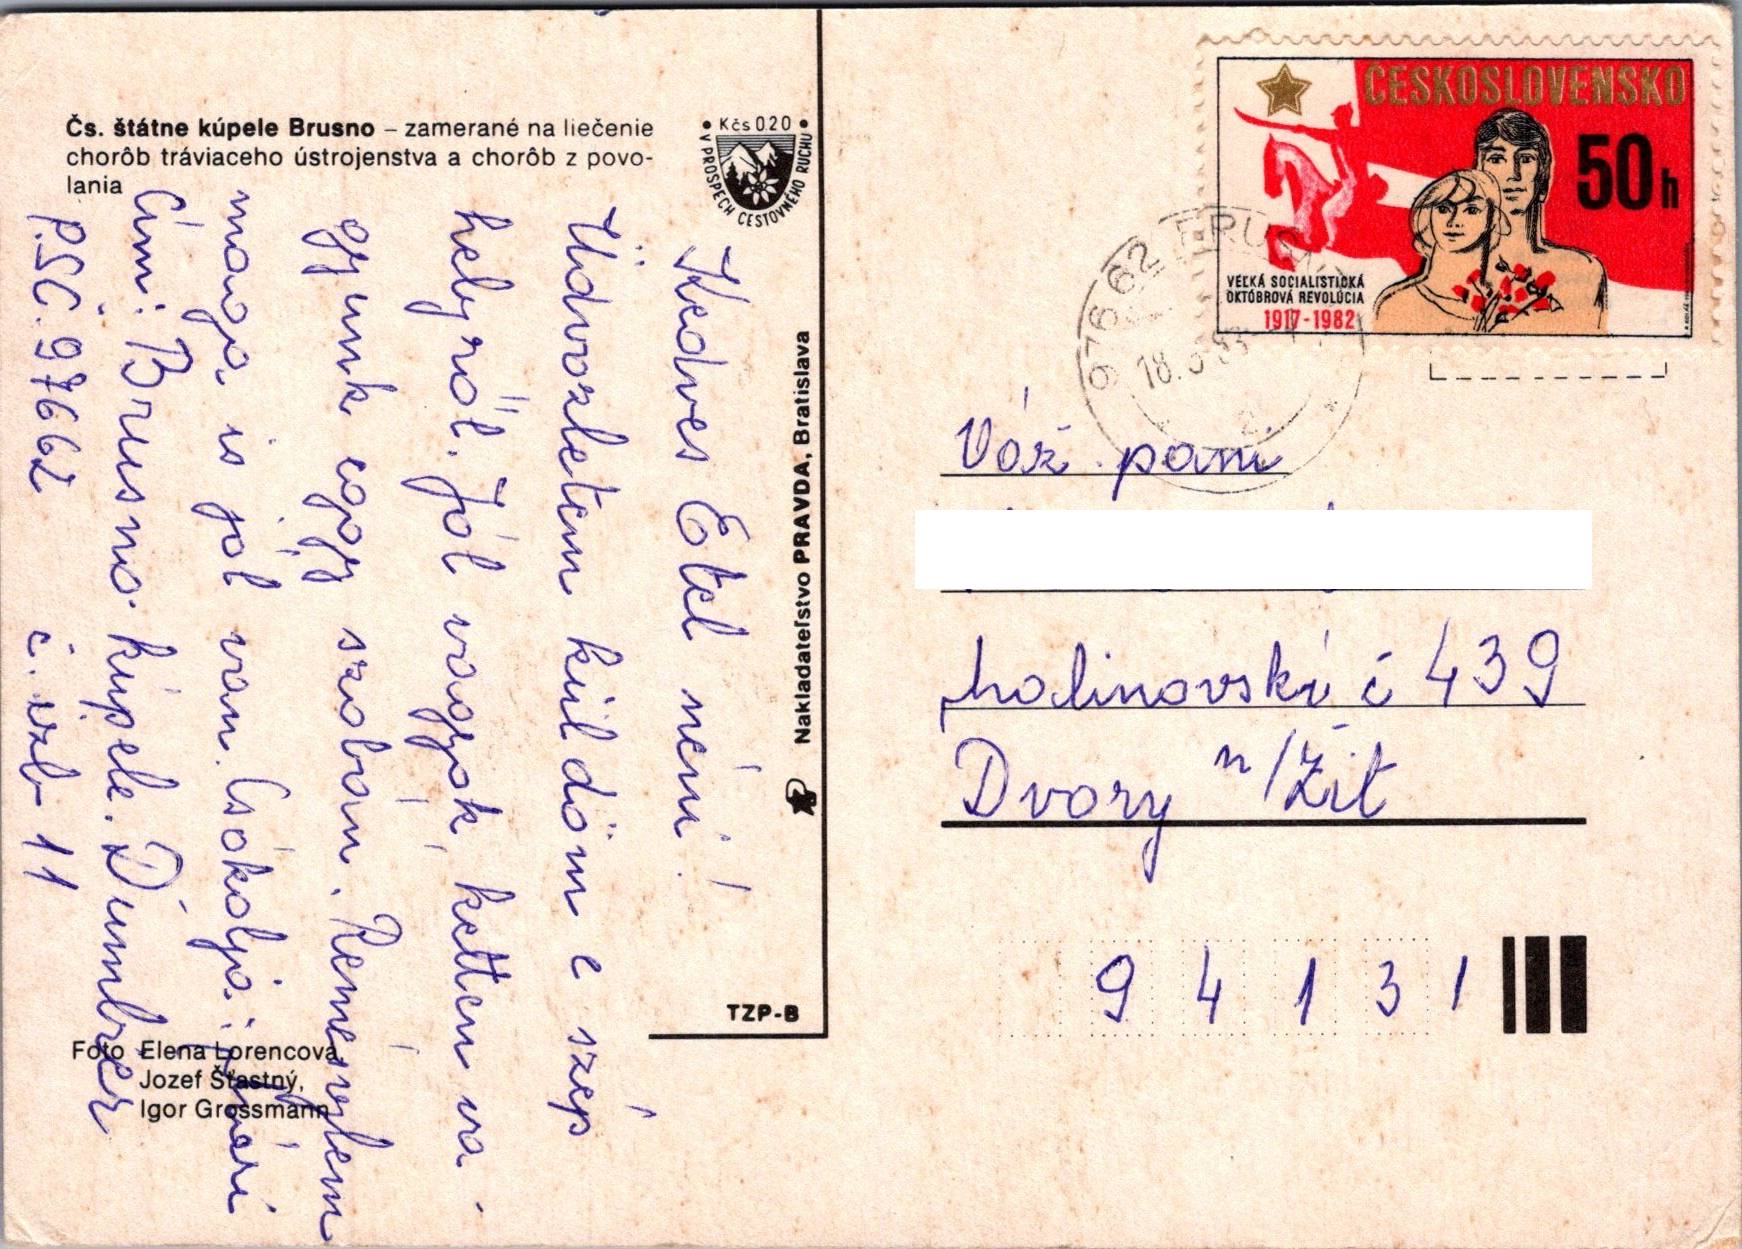 Čs. štátne kúpele Brusno – zamerané na liečenie
chorôb tráviaceho ústrojenstva a chorôb z povo-
lania
• Kčs 0.20 •
V PROSPECH CESTOVNÉHO RUCHU
Kedves Etel néni!
Üdvözletem küldöm e szép
helyről. Jól vagyok, ketten va-
gyunk egy szobán. Remésvlem
maga is jól van. Csókolja:
Cím: Brusno kúpele. Ďumbier
P.S.Č. 97662 č. izb 11
Foto Elena Lorencová,
Jozef Šťastný,
Igor Grossmann
Nakladateľstvo PRAVDA, Bratislava
TZP-B
ČESKOSLOVENSKO
50 h
VEĽKÁ SOCIALISTICKÁ
OKTÓBROVÁ REVOLÚCIA
1917-1982
976 62 BRUS
18.
Váž. pani
Malinovski č 439
Dvory n/Žit
94131